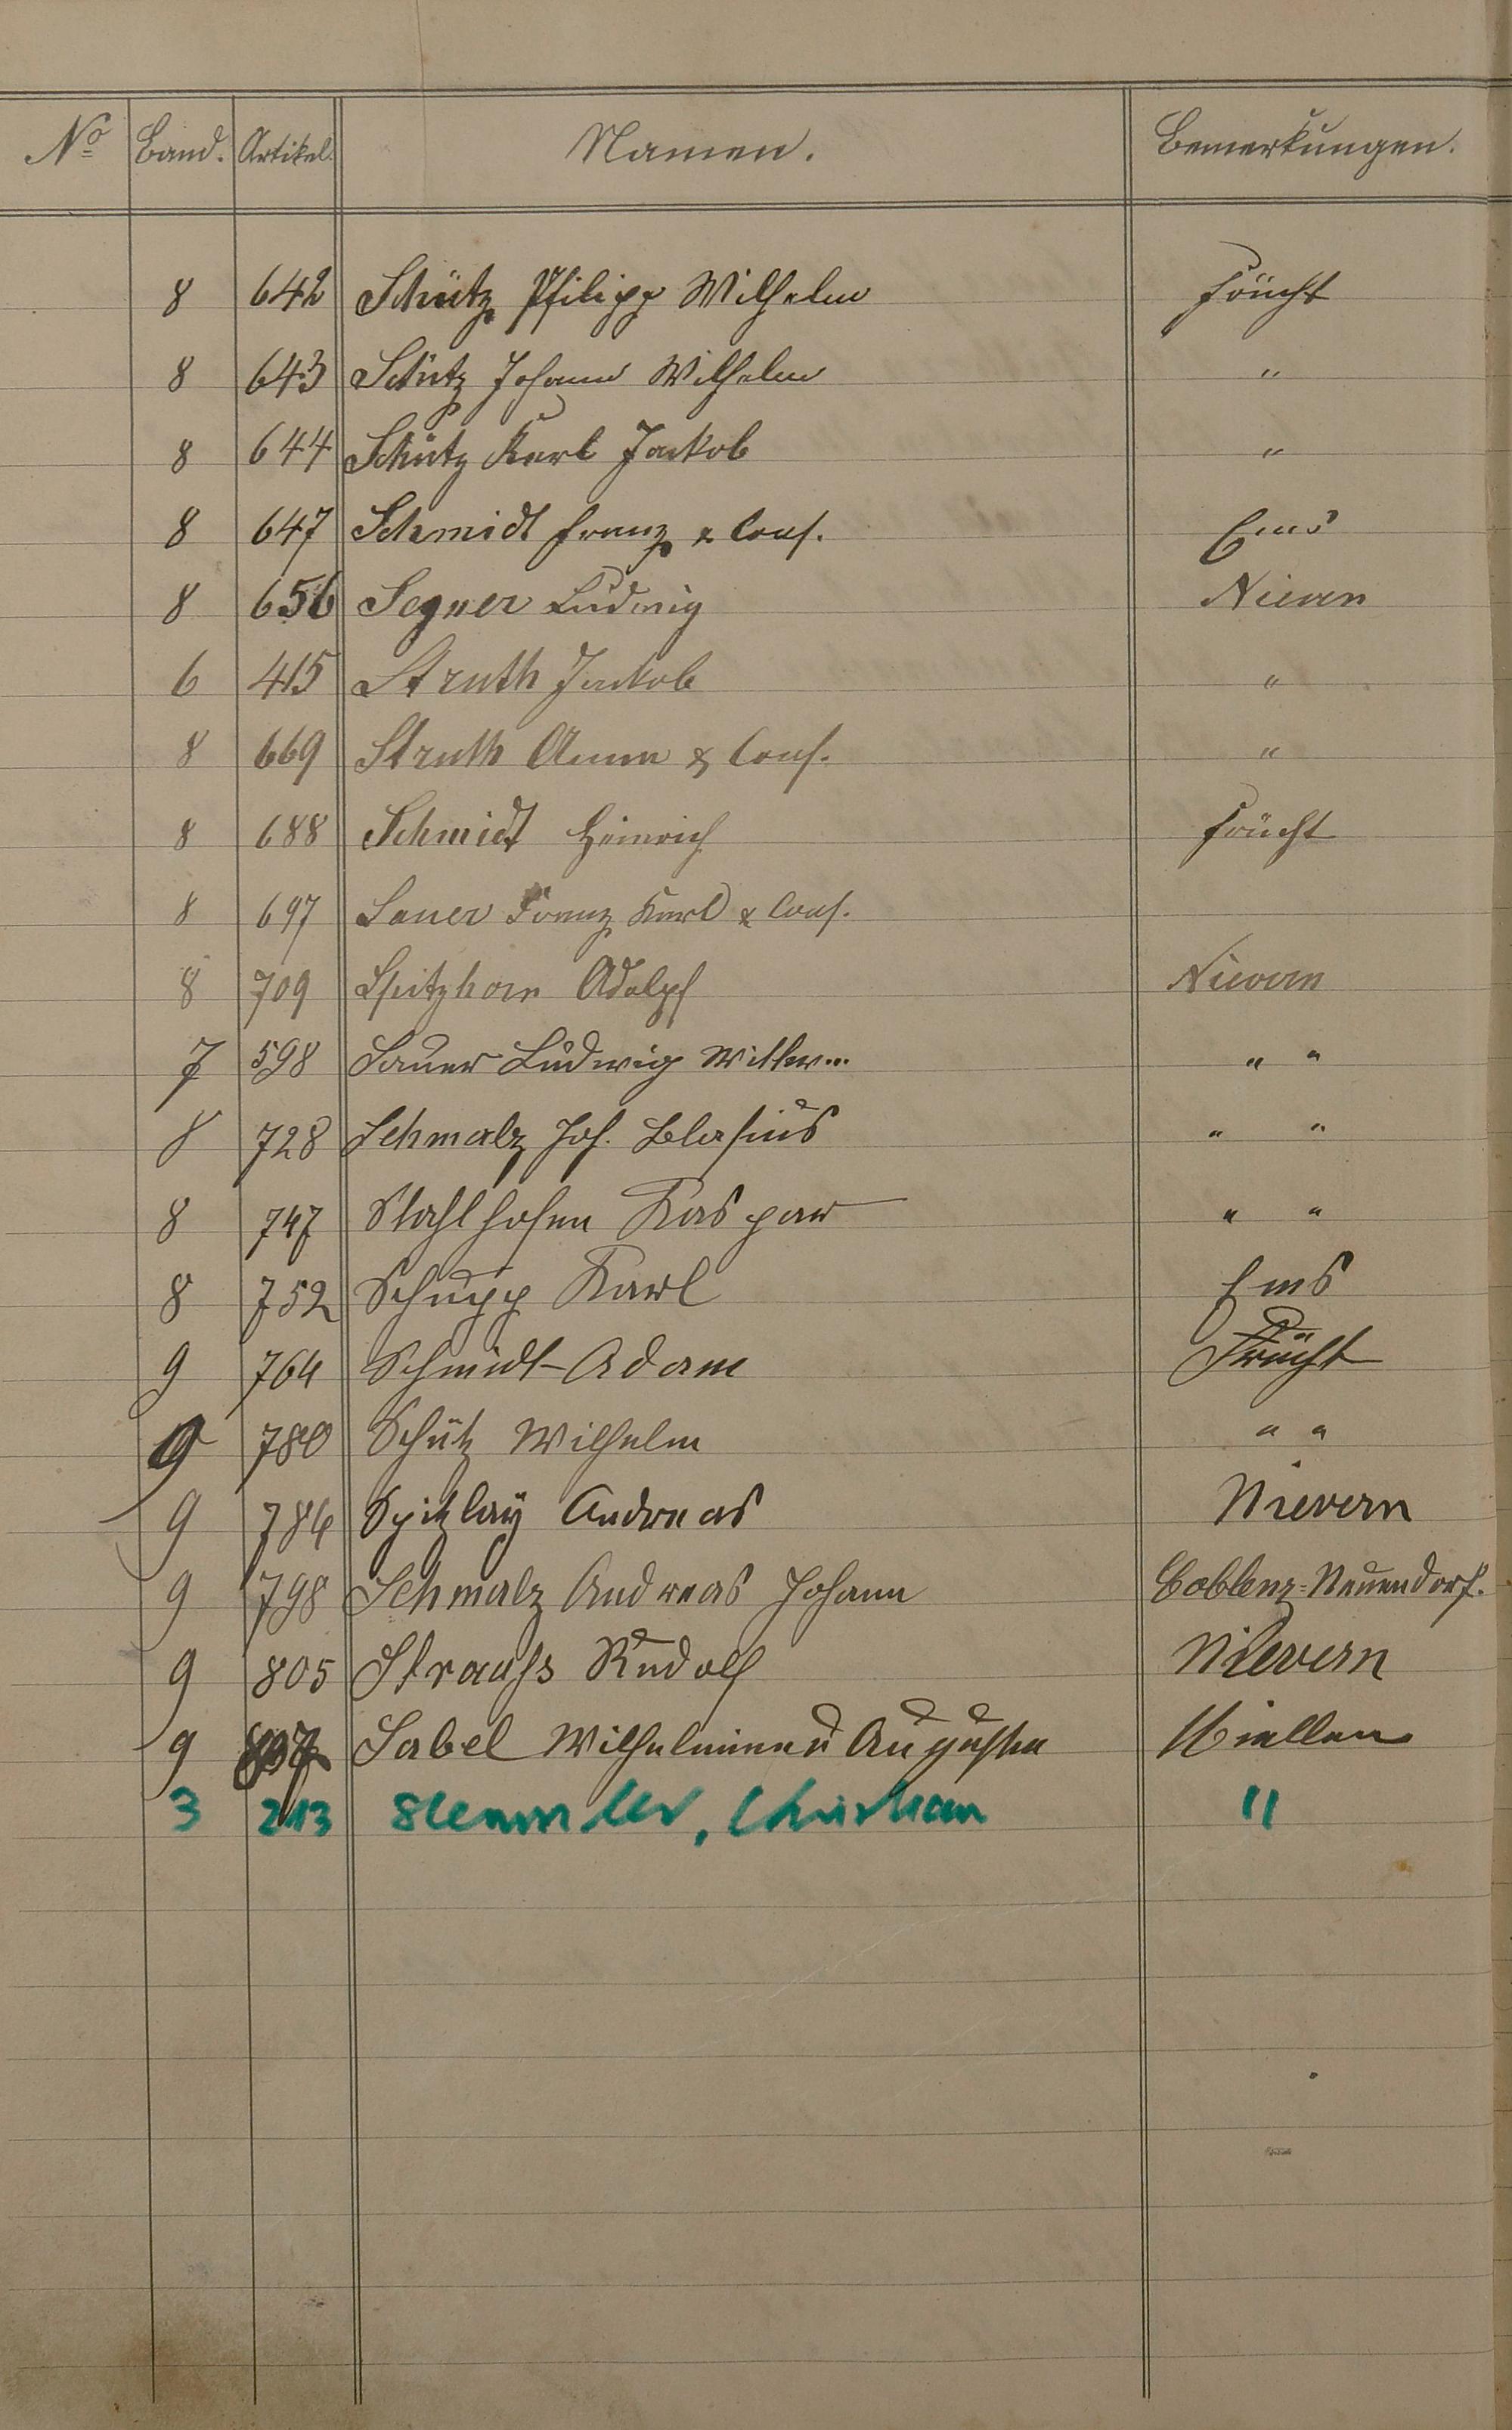 No Band. Artikel. Namen. Bemerkungen.
8 642 Schütz Philipp Wilhelm Frücht
8 643 Schütz Johann Wilhelm "
8 644 Schütz Karl Jakob "
8 647 Schmidt Franz & Cons. Ems
8 656 Segner Ludwig Nievern
6 415 Struth Jakob "
8 669 Struth Anna & Cons. "
8 688 Schmidt Heinrich Frücht
8 697 Sauer Franz Karl & Cons.
8 709 Spitzhorn Adolph Nievern
7 598 Sauer Ludwig Witwe " "
8 728 Schmalz Joh. Blasius " "
8 747 Stahlhofen Kaspar " "
8 752 Schupp Karl Ems
9 764 Schmidt Adam Frücht
9 780 Schütz Wilhelm " "
9 786 Spitzlay Andreas Nievern
9 798 Schmalz Andreas Johann Coblenz-Neuendorf.
9 805 Strauss Rudolf Nievern
9 Sabel Wilhelmine Auguste Miellen
3 213 Christian "